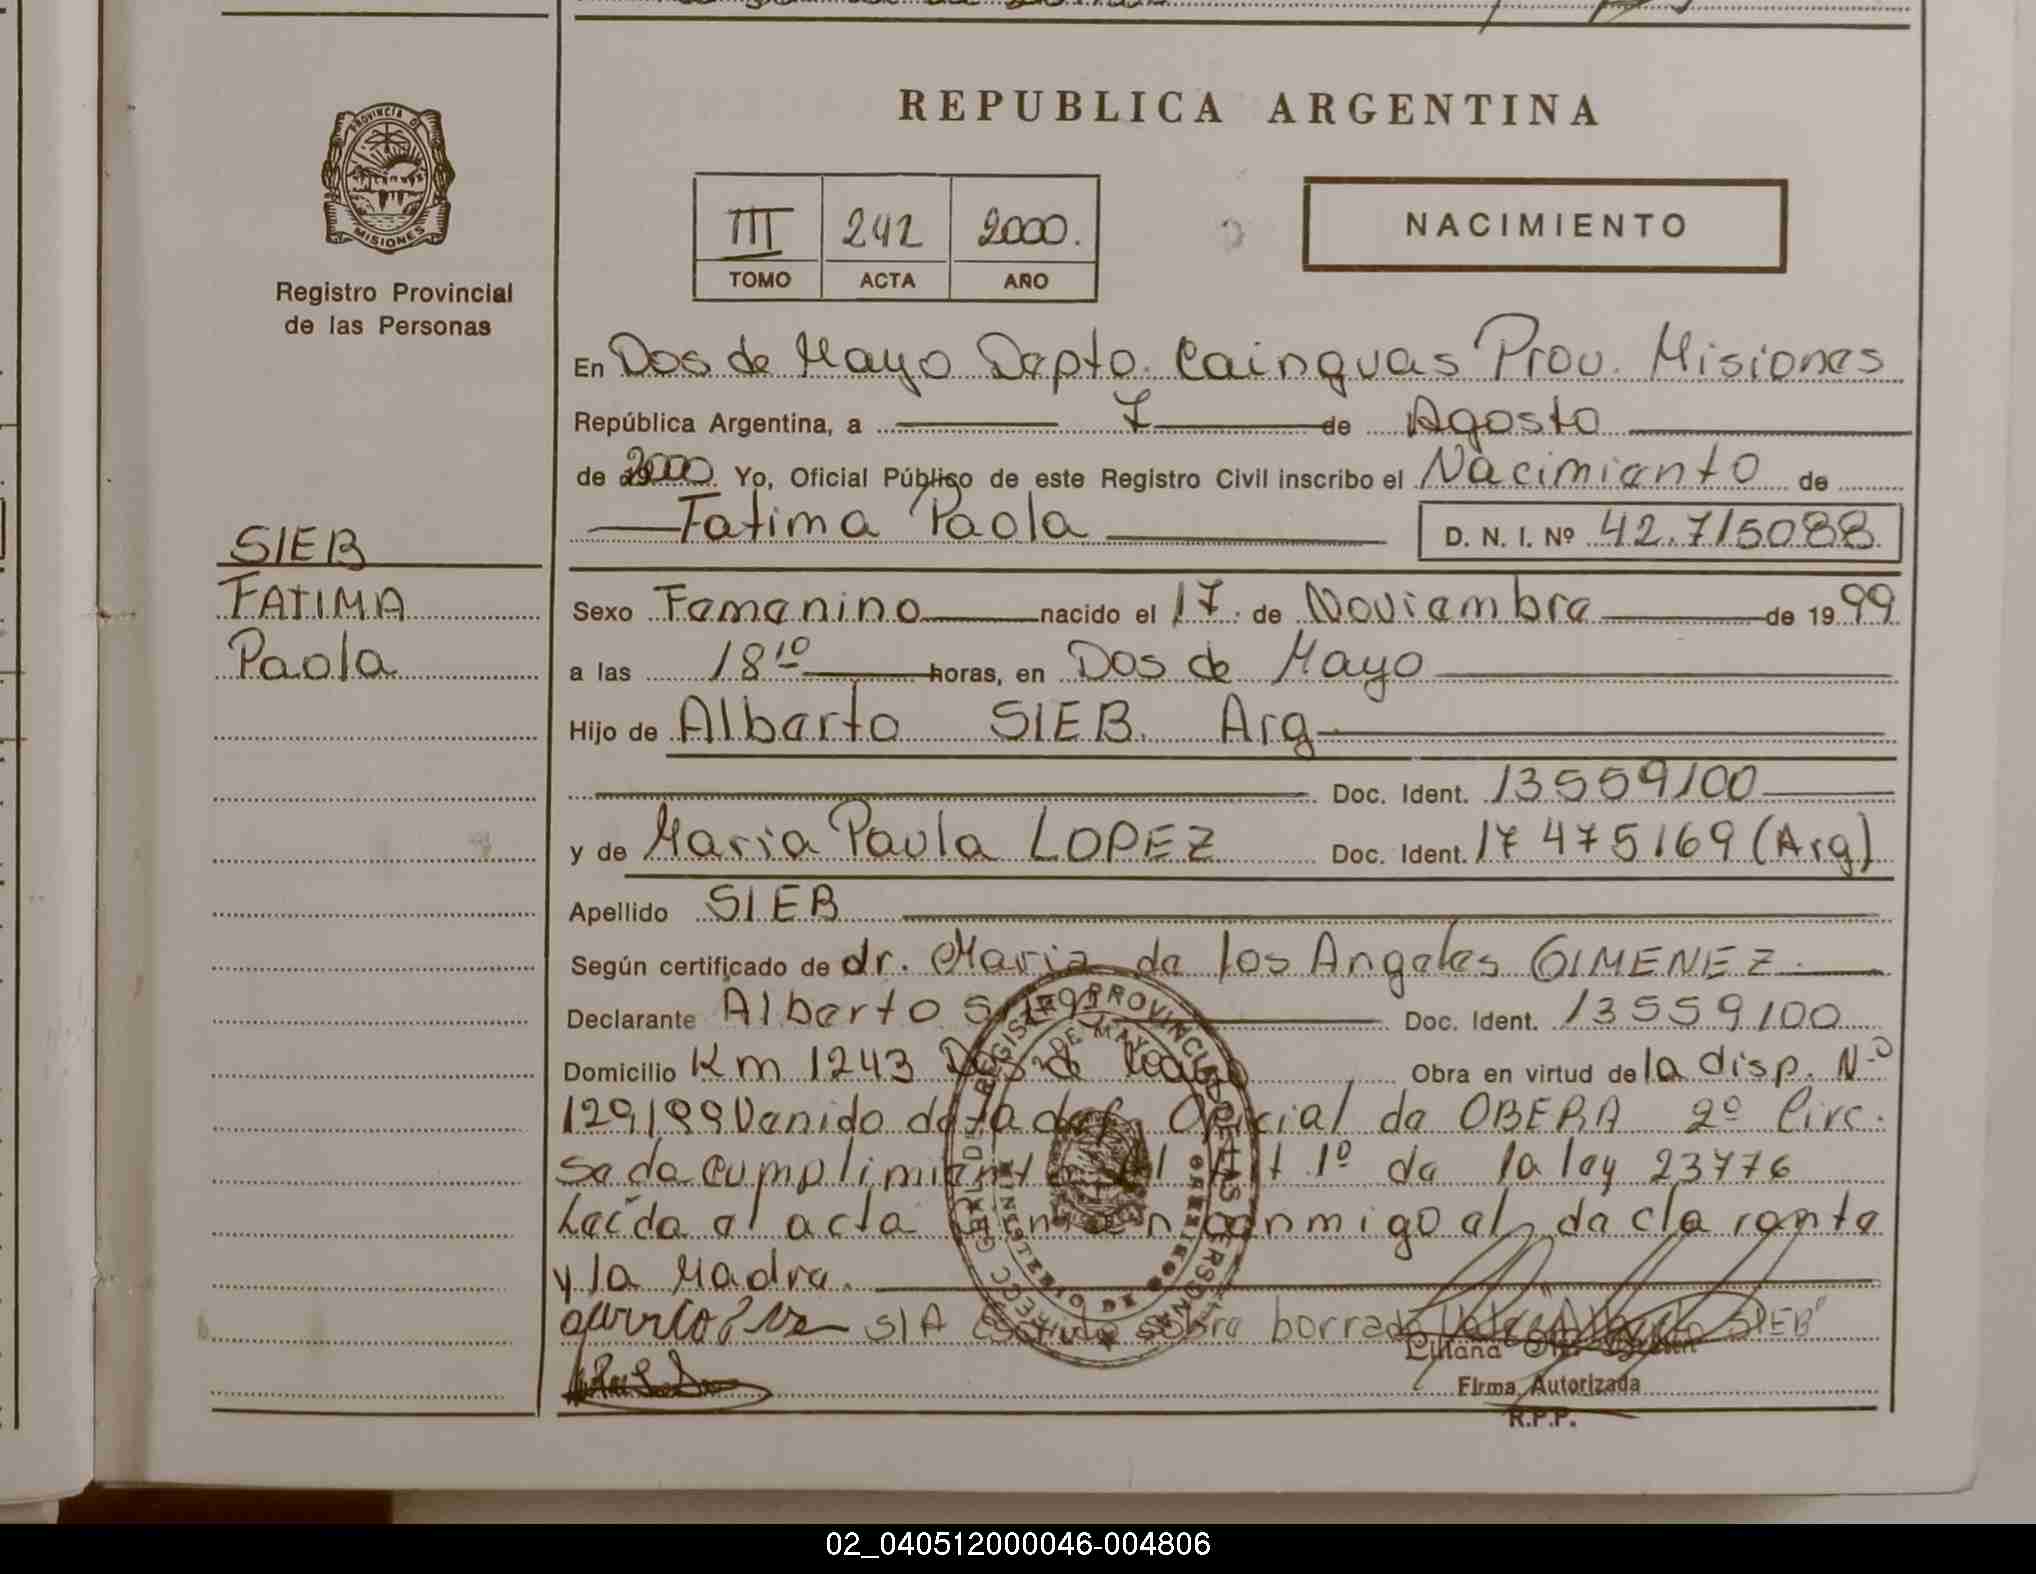 REPUBLICA ARGENTINA
PROVINCIA DE
MISIONES
Registro Provincial
de las Personas
III 242 2000.
TOMO ACTA AÑO
NACIMIENTO
En Dos de Mayo Depto. Cainguas Prov. Misiones
República Argentina, a 7 de Agosto
de 2000 Yo, Oficial Público de este Registro Civil inscribo el Nacimiento de
Fatima Paola D. N. I. Nº 42.715088
SIEB
FATIMA
Paola
Sexo Femenino nacido el 17 de Noviembre de 1999
a las 18 10 horas, en Dos de Mayo
Hijo de Alberto SIEB Arg
Doc. Ident. 13559100
y de Maria Paula LOPEZ Doc. Ident. 17475169 (Arg)
Apellido SIEB
Según certificado de dr. Maria de los Angeles GIMENEZ.
Declarante Alberto Doc. Ident. 13559100
Domicilio Km 1243 Dos de Mayo Obra en virtud de la disp. Nº
129/99 Venido de la del. Oficial de OBERA 2º Circ.
Se da cumplimiento al Art 1º de la ley 23776
Leída el acta firman conmigo el declarante
y la Madre.
S/A Escrito sobre borrado Vale "Alberto SIEB"
Liliana
Firma Autorizada
R.P.P.
02_040512000046-004806